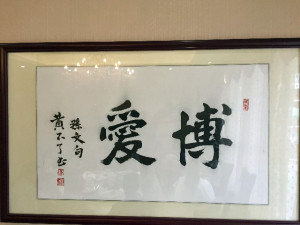 博愛
孫文句
黃不了书